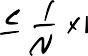 ≤ 1/N × 1